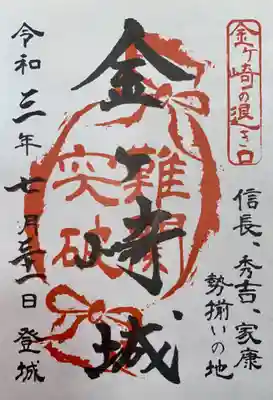 金ヶ崎の退き口
信長、秀吉、家康
勢揃いの地
金ヶ崎城
難関
突破
令和三年七月三十一日 登城